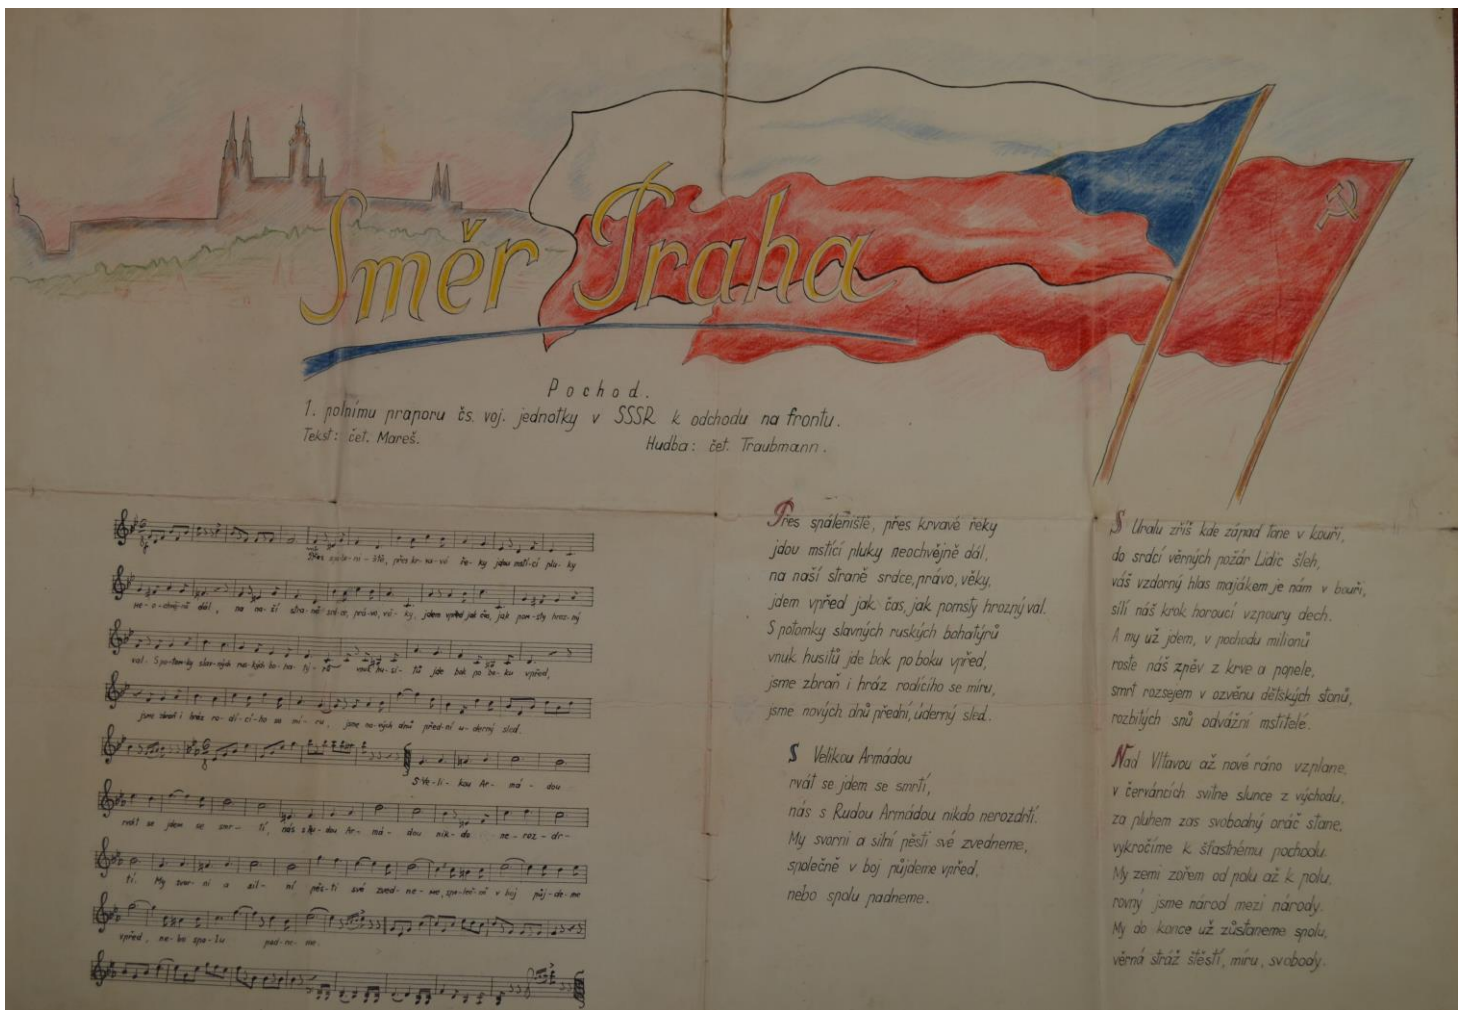 Směr Praha
Pochod.
1. polnímu praporu čs. voj. jednotky v SSSR k odchodu na frontu.
Tekst: čet. Mareš.
Hudba: čet. Traubmann.
Přes spáleniště, přes krvavé řeky jdou mstící pluky
ne-o-chvějně dál, na na-ší stra-ně srd-ce, prá-vo, vě-ky, jdem vpřed jak čas, jak pom-sty hroz-ný
val. S po-tom-ky slav-ných rus-kých bo-ha-tý-rů vnuk hu-si-tů jde bok po bo-ku vpřed,
jsme zbraň i hráz ro-dí-cí-ho se mí-ru, jsme no-vých dnů před-ní ú-derný sled.
S Ve-li-kou Ar-má-dou
rvát se jdem se smr-tí, nás s Ru-dou Ar-má-dou nik-do ne-roz-dr-
tí. My svor-ni a sil-ní pěs-ti své zved-ne-me, spo-leč-ně v boj půj-de-me
vpřed, ne-bo spo-lu pad-ne-me.
Přes spáleniště, přes krvavé řeky
jdou mstící pluky neochvějně dál,
na naší straně srdce, právo, věky,
jdem vpřed jak čas, jak pomsty hrozný val.
S potomky slavných ruských bohatýrů
vnuk husitů jde bok po boku vpřed,
jsme zbraň i hráz rodícího se míru,
jsme nových dnů přední, úderný sled.
S Velikou Armádou
rvát se jdem se smrtí,
nás s Rudou Armádou nikdo nerozdrtí.
My svorni a silní pěsti své zvedneme,
společně v boj půjdeme vpřed,
nebo spolu padneme.
S Uralu zříš kde západ tone v kouři,
do srdcí věrných požár Lidic šleh,
váš vzdorný hlas majákem je nám v bouři,
sílí náš krok horoucí vzpoury dech.
A my už jdem, v pochodu milionů
roste náš zpěv z krve a popele,
smrt rozsejem v ozvěnu dětských stonů,
rozbitých snů odvážní mstitelé.
Nad Vltavou až nové ráno vzplane,
v červáncích svitne slunce z východu,
za pluhem zas svobodný oráč stane,
vykročíme k šťastnému pochodu.
My zemi zořem od polu až k polu,
rovný jsme národ mezi národy.
My do konce už zůstaneme spolu,
věrná stráž štěstí, míru, svobody.